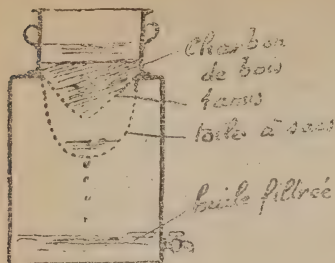 charbon
de bois
tamis
toile à sacs
huile filtrée